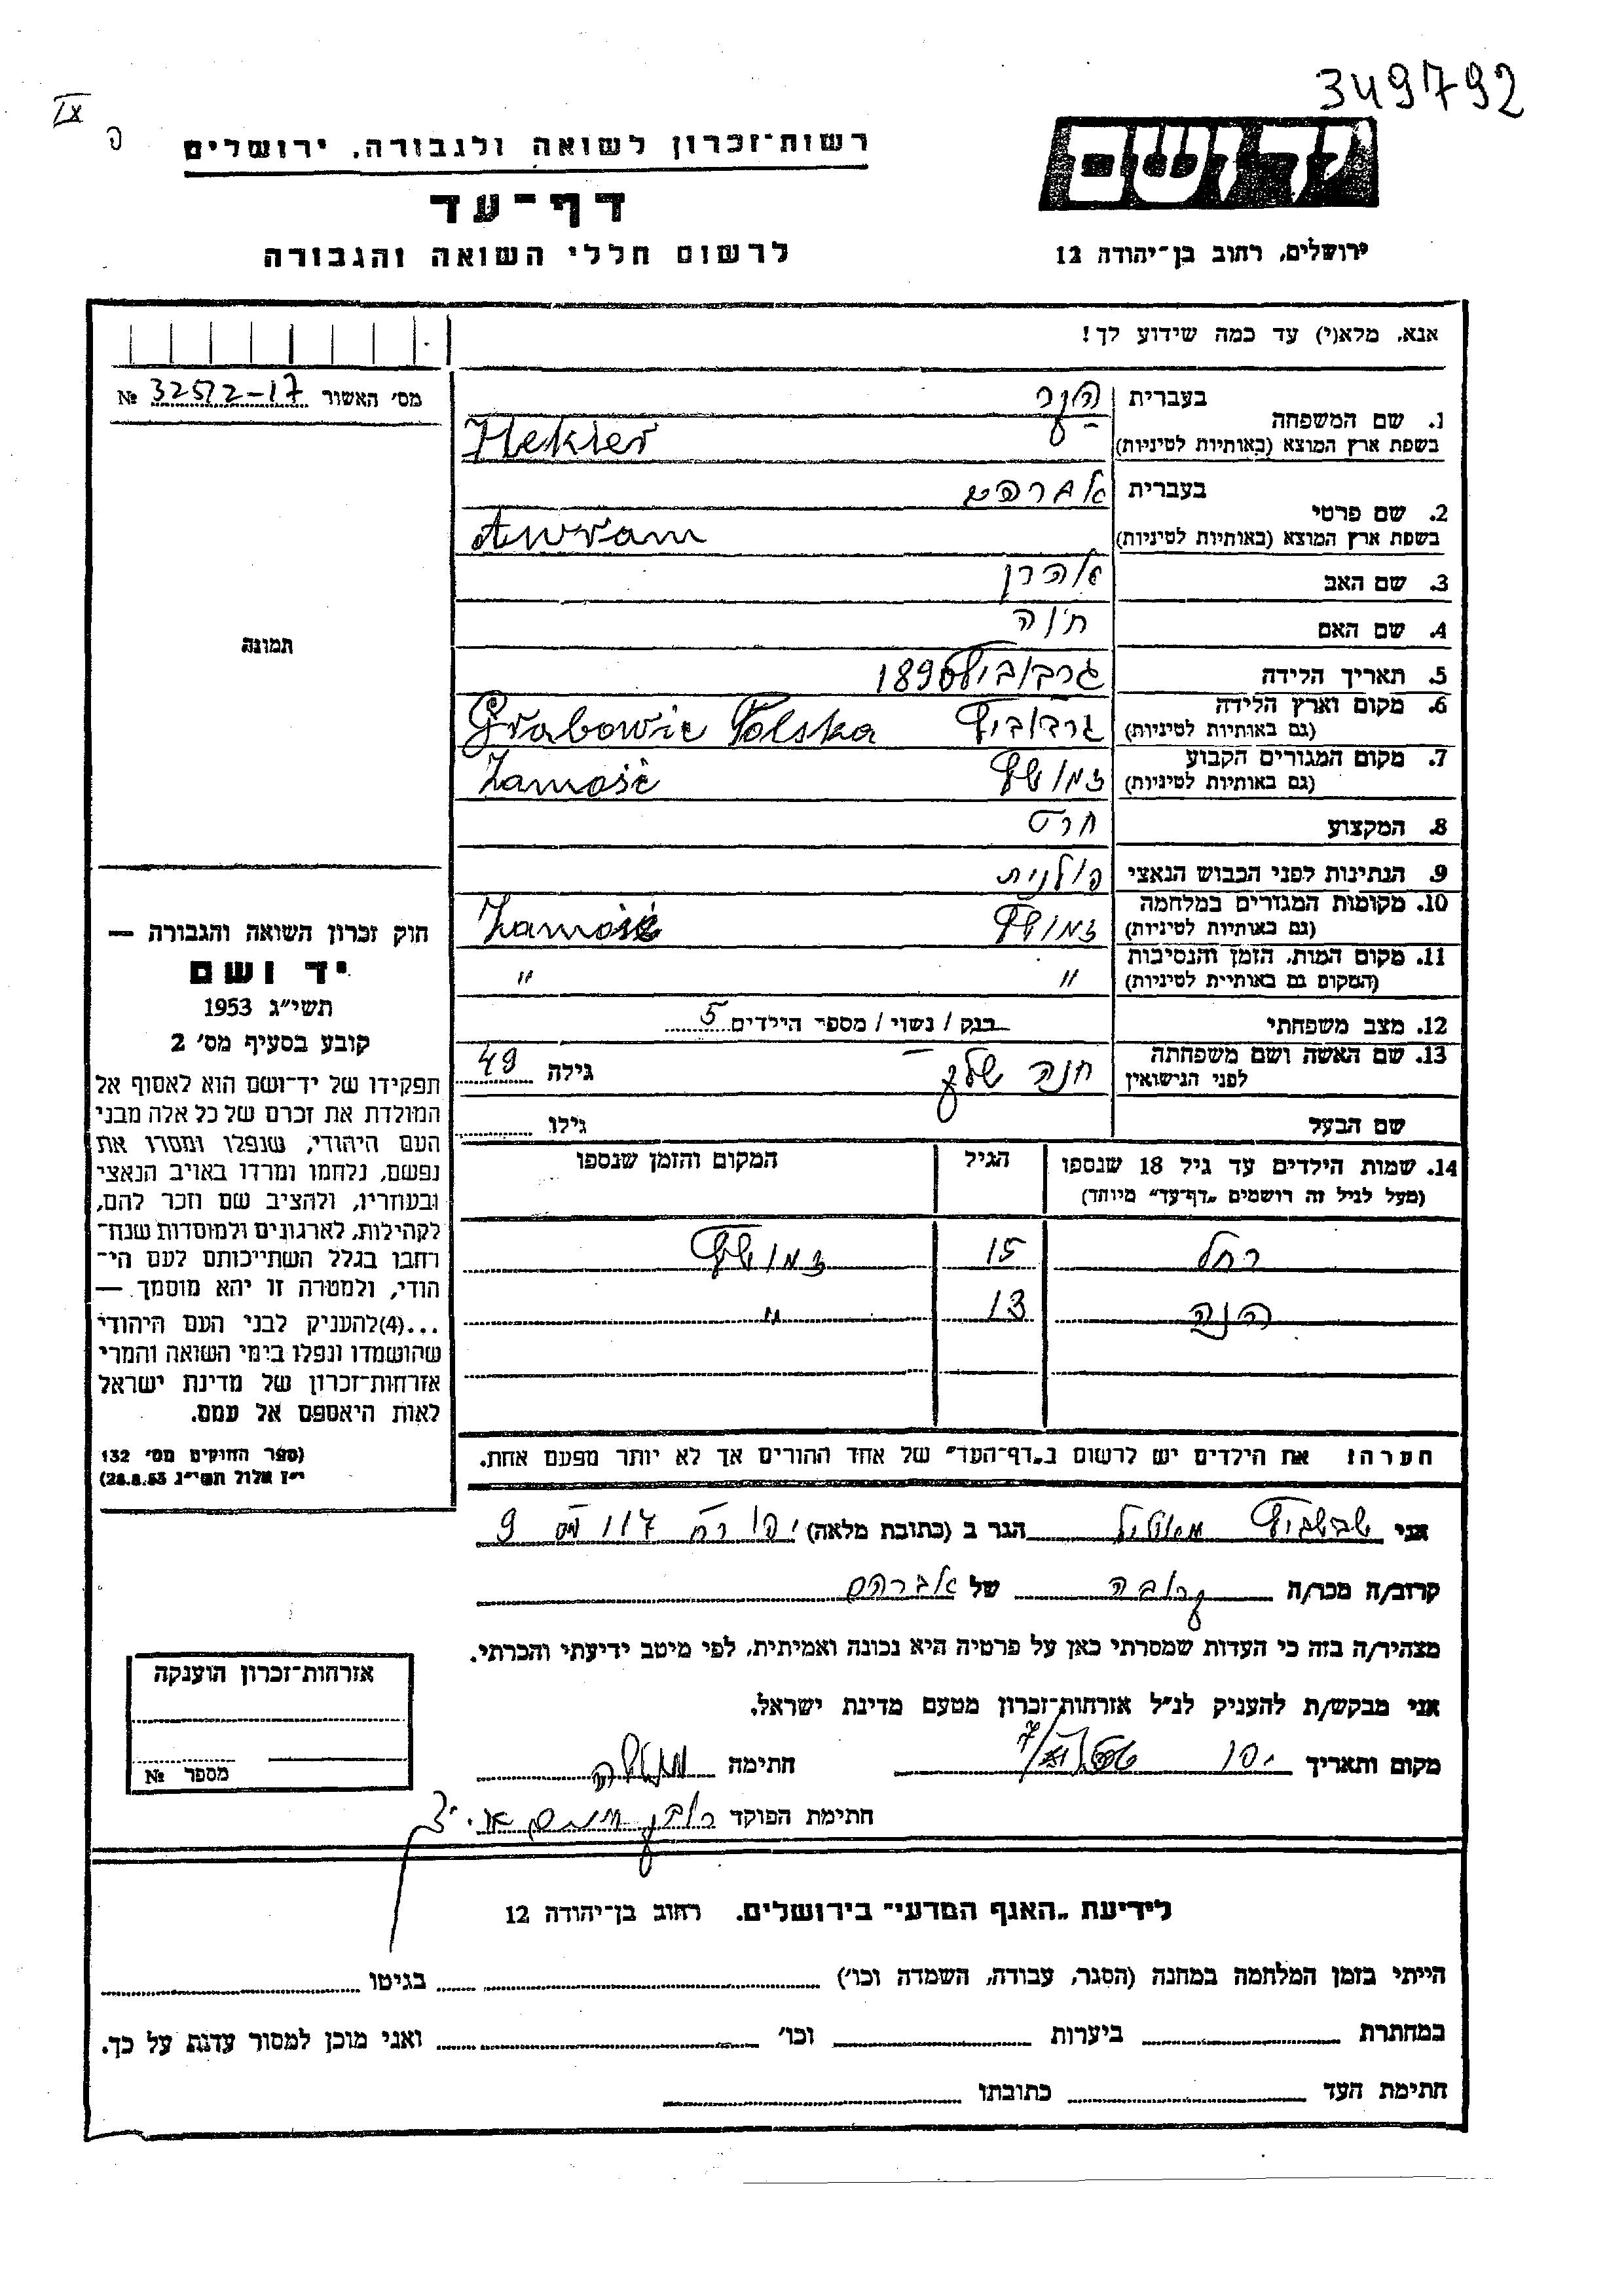 349792
IX
רשות־זכרון לשואה ולגבורה, ירושלים
דף־עד
לרשום חללי השואה והגבורה
יד ושם
ירושלים, רחוב בן־יהודה 12
אנא, מלא(י) עד כמה שידוע לך!
מס׳ האשור 32572-17 №
1. שם המשפחה
בעברית
בשפת ארץ המוצא (באותיות לטיניות) Hekler
2. שם פרטי
בעברית אברהם
בשפת ארץ המוצא (באותיות לטיניות) Awram
3. שם האב אהרן
4. שם האם
5. תאריך הלידה 1896
6. מקום וארץ הלידה
(גם באותיות לטיניות) Grabowie Polska
7. מקום המגורים הקבוע
(גם באותיות לטיניות) זמושץ Zamość
8. המקצוע חרט
9. הנתינות לפני הכבוש הנאצי פולנית
10. מקומות המגורים במלחמה
(גם באותיות לטיניות) זמושץ Zamość
11. מקום המות, הזמן והנסיבות
(המקום גם באותיות לטיניות) " "
12. מצב משפחתי רווק / נשוי / מספר הילדים 5
13. שם האשה ושם משפחתה
לפני הנישואין חנה גילה 49
שם הבעל גילו
14. שמות הילדים עד גיל 18 שנספו
(מעל לגיל זה רושמים „דף־עד״ מיוחד)
הגיל
המקום והזמן שנספו
רחל 15 זמושץ
הנה 13 "
הערה: את הילדים יש לרשום ב„דף־העד״ של אחד ההורים אך לא יותר מפעם אחת.
תמונה
חוק זכרון השואה והגבורה —
יד ושם
תשי״ג 1953
קובע בסעיף מס׳ 2
תפקידו של יד־ושם הוא לאסוף אל
המולדת את זכרם של כל אלה מבני
העם היהודי, שנפלו ומסרו את
נפשם, נלחמו ומרדו באויב הנאצי
ובעוזריו, ולהציב שם וזכר להם,
לקהילות, לארגונים ולמוסדות שנח־
רבו בגלל השתייכותם לעם הי־
הודי, ולמטרה זו יהא מוסמך —
...(4)להעניק לבני העם היהודי
שהושמדו ונפלו בימי השואה והמרי
אזרחות־זכרון של מדינת ישראל
לאות היאספם אל עמם.
(ספר החוקים מס׳ 132
י״ז אלול תשי״ג 28.8.53)
אני הגר ב (כתובת מלאה) 9
קרוב/ה מכר/ה קרובה של אברהם
מצהיר/ה בזה כי העדות שמסרתי כאן על פרטיה היא נכונה ואמיתית, לפי מיטב ידיעתי והכרתי.
אני מבקש/ת להעניק לנ״ל אזרחות־זכרון מטעם מדינת ישראל.
מקום ותאריך יפו חתימה
חתימת הפוקד
אזרחות־זכרון הוענקה
מספר №
לידיעת „האגף המדעי״ בירושלים, רחוב בן־יהודה 12
הייתי בזמן המלחמה במחנה (הסגר, עבודה, השמדה וכו׳) בגיטו
במחתרת ביערות וכו׳ ואני מוכן למסור עדות על כך.
חתימת העד כתובתו